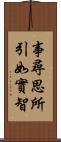 事尋思所
引如實智